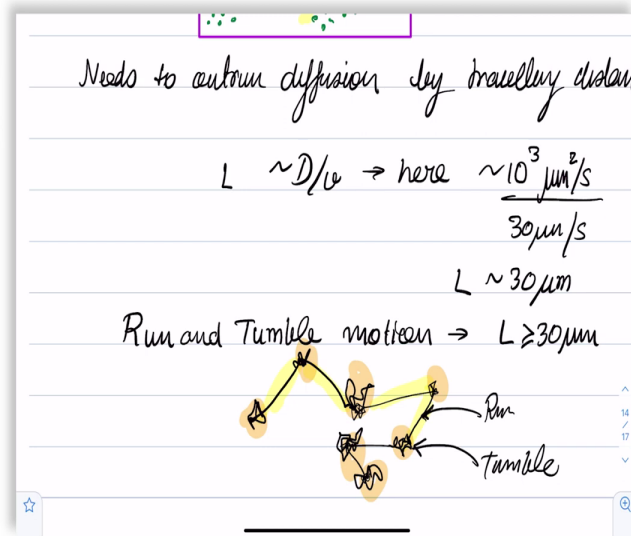 Needs to outrun diffusion by travelling distan
L ~ D/v → here ~10³ μm²/s
30 μm/s
L ~ 30 μm
Run and Tumble motion → L ≥ 30 μm
Run
Tumble
14
/
17